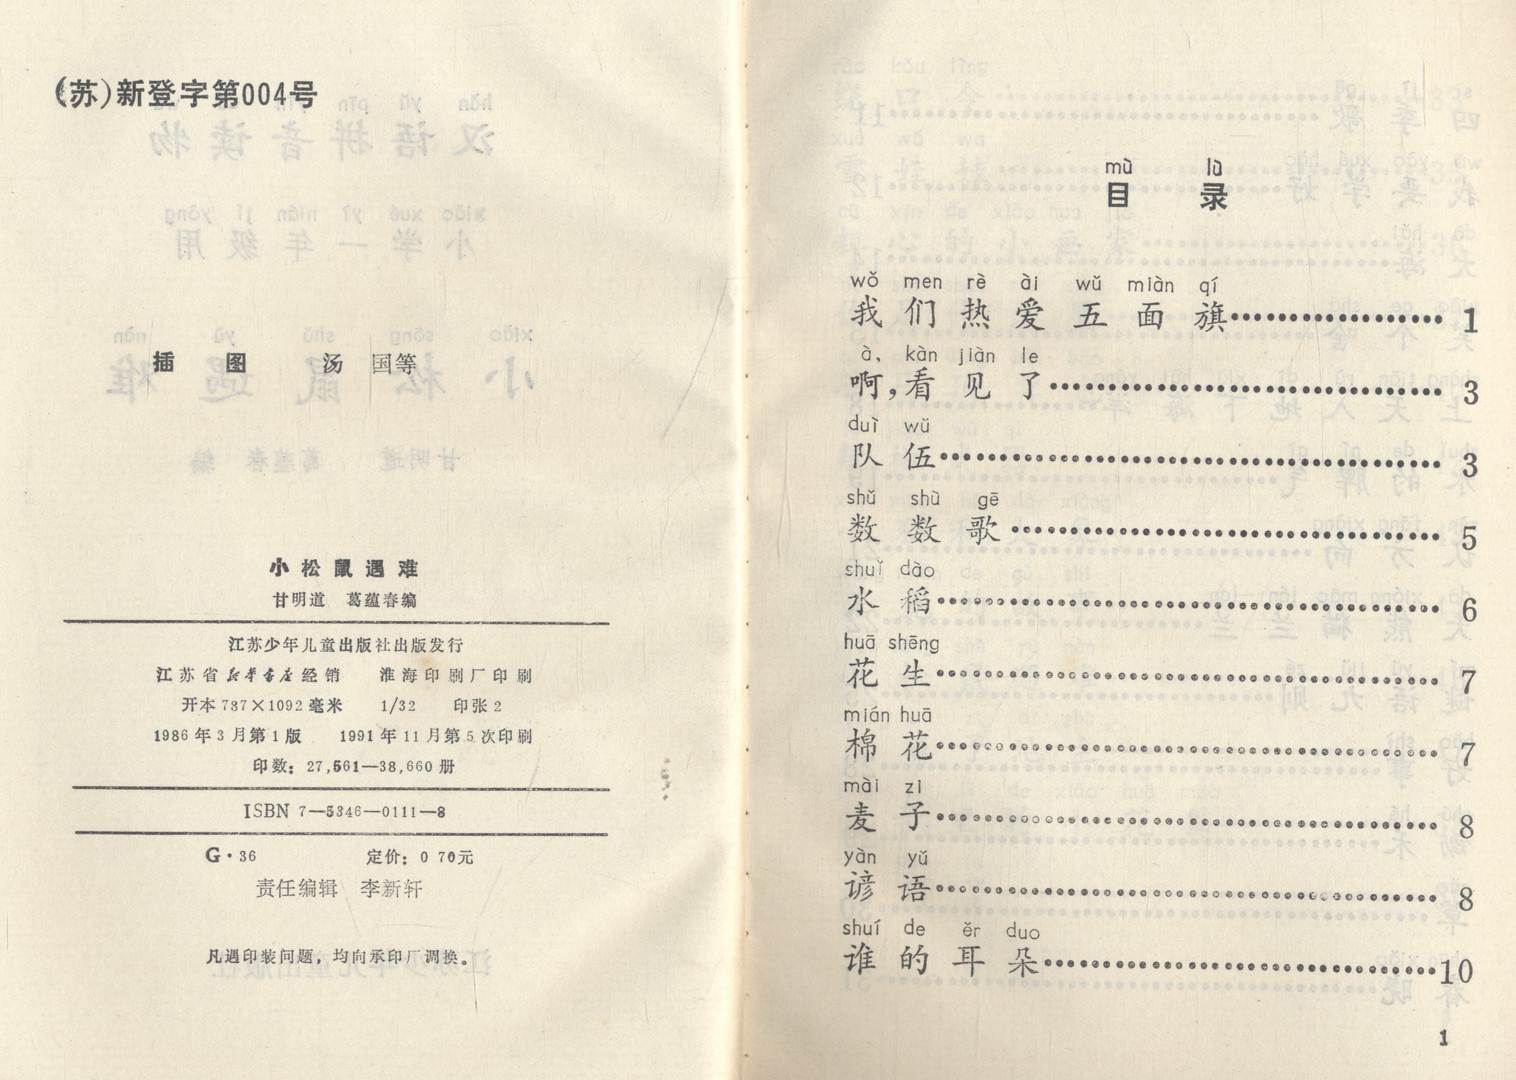 (苏)新登字第004号
插 图 汤 国等
小松鼠遇难
甘明道 葛蕴春编
江苏少年儿童出版社出版发行
江苏省新华书店经销 淮海印刷厂印刷
开本787×1092毫米 1/32 印张2
1986年3月第1版 1991年11月第5次印刷
印数：27,561—38,660册
ISBN 7—5346—0111—8
G·36 定价：0 70元
责任编辑 李新轩
凡遇印装问题，均向承印厂调换。
mù lù
目 录
wǒ men rè ài wǔ miàn qí
我们热爱五面旗……………… 1
à, kàn jiàn le
啊,看见了……………… 3
duì wǔ
队伍……………… 3
shǔ shù gē
数数歌……………… 5
shuǐ dào
水稻……………… 6
huā shēng
花生……………… 7
mián huā
棉花……………… 7
mài zi
麦子……………… 8
yàn yǔ
谚语……………… 8
shuí de ěr duo
谁的耳朵………………10
1